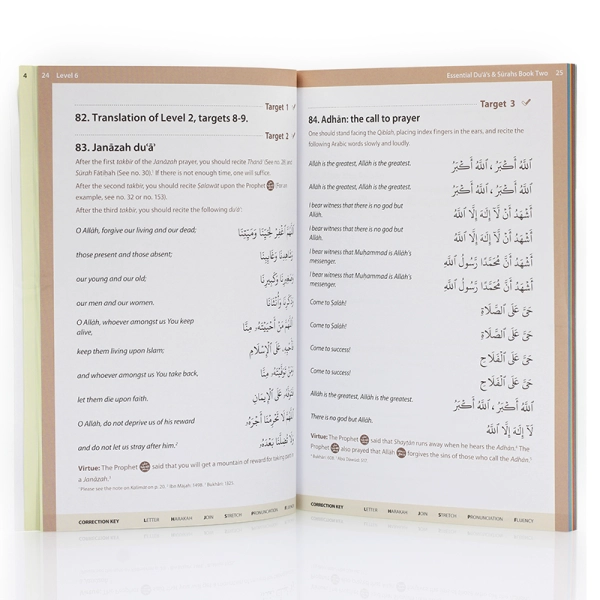 4
24 Level 6
Target 1
82. Translation of Level 2, targets 8-9.
Target 2
83. Janāzah du'ā'
After the first takbīr of the Janāzah prayer, you should recite Thanā' (See no. 26) and
Sūrah Fātiḥah (See no. 30).¹ If there is not enough time, one will suffice.
After the second takbīr, you should recite Ṣalawāt upon the Prophet (For an
example, see no. 32 or no. 153).
After the third takbīr, you should recite the following du'ā':
O Allāh, forgive our living and our dead; اَللّٰهُمَّ اغْفِرْ لِحَيِّنَا وَمَيِّتِنَا
those present and those absent; وَشَاهِدِنَا وَغَائِبِنَا
our young and our old; وَصَغِيْرِنَا وَكَبِيْرِنَا
our men and our women. وَذَكَرِنَا وَأُنْثَانَا
O Allāh, whoever amongst us You keep
alive, اَللّٰهُمَّ مَنْ أَحْيَيْتَهُ، مِنَّا
keep them living upon Islam; فَأَحْيِهِ، عَلَى الْإِسْلَامِ
and whoever amongst us You take back, وَمَنْ تَوَفَّيْتَهُ، مِنَّا
let them die upon faith. فَتَوَفَّهُ، عَلَى الْإِيْمَانِ
O Allāh, do not deprive us of his reward اَللّٰهُمَّ لَا تَحْرِمْنَا أَجْرَهُ،
and do not let us stray after him.² وَلَا تُضِلَّنَا بَعْدَهُ،
Virtue: The Prophet said that you will get a mountain of reward for taking part in
a Janāzah.³
CORRECTION KEY LETTER HARAKAH JOIN STRETCH PRONUNCIATION FLUENCY
Essential Du'ā's & Sūrahs Book Two 25
Target 3
84. Adhān: the call to prayer
One should stand facing the Qiblah, placing index fingers in the ears, and recite the
following Arabic words slowly and loudly.
Allāh is the greatest, Allāh is the greatest. اَللّٰهُ أَكْبَرُ ، اَللّٰهُ أَكْبَرُ
Allāh is the greatest, Allāh is the greatest. اَللّٰهُ أَكْبَرُ ، اَللّٰهُ أَكْبَرُ
I bear witness that there is no god but
Allāh. أَشْهَدُ أَنْ لَّا إِلٰهَ إِلَّا اللّٰهُ
I bear witness that there is no god but
Allāh. أَشْهَدُ أَنْ لَّا إِلٰهَ إِلَّا اللّٰهُ
I bear witness that Muḥammad is Allāh's
messenger. أَشْهَدُ أَنَّ مُحَمَّدًا رَّسُولُ اللّٰهِ
I bear witness that Muḥammad is Allāh's
messenger. أَشْهَدُ أَنَّ مُحَمَّدًا رَّسُولُ اللّٰهِ
Come to Ṣalāh! حَيَّ عَلَى الصَّلَاةِ
Come to Ṣalāh! حَيَّ عَلَى الصَّلَاةِ
Come to success! حَيَّ عَلَى الْفَلَاحِ
Come to success! حَيَّ عَلَى الْفَلَاحِ
Allāh is the greatest, Allāh is the greatest. اَللّٰهُ أَكْبَرُ ، اَللّٰهُ أَكْبَرُ
There is no god but Allāh. لَا إِلٰهَ إِلَّا اللّٰهُ
Virtue: The Prophet said that Shayṭān runs away when he hears the Adhān.⁴ The
Prophet also prayed that Allāh forgives the sins of those who call the Adhān.⁵
CORRECTION KEY LETTER HARAKAH JOIN STRETCH PRONUNCIATION FLUENCY